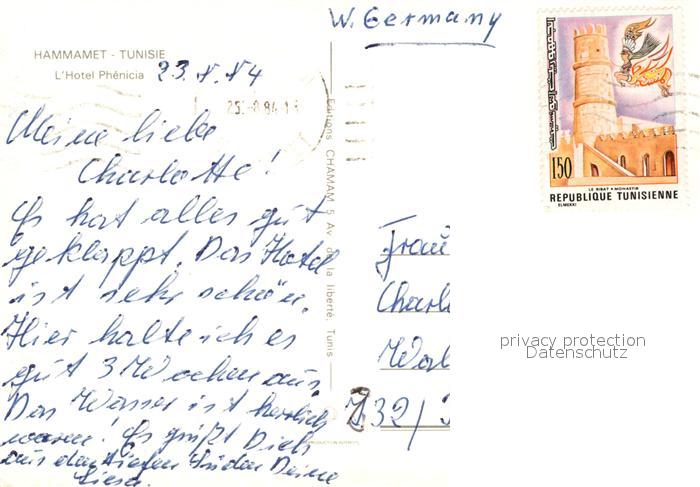 W. Germany
HAMMAMET - TUNISIE
L'Hotel Phénicia
23.8.84
Meine liebe
Charlotte!
Es hat alles gut
geklappt. Das Hotel
ist sehr schön.
Hier halte ich es
gut 3 Wochen aus.
Das Wasser ist herrlich
warm! Es grüßt Dich
aus dem tiefen Süden Deine
Editions CHAMAM 5 Av. de la liberté, Tunis
150
LE RIBAT • MONASTIR
REPUBLIQUE TUNISIENNE
ELMEKKI
Frau
privacy protection
Datenschutz